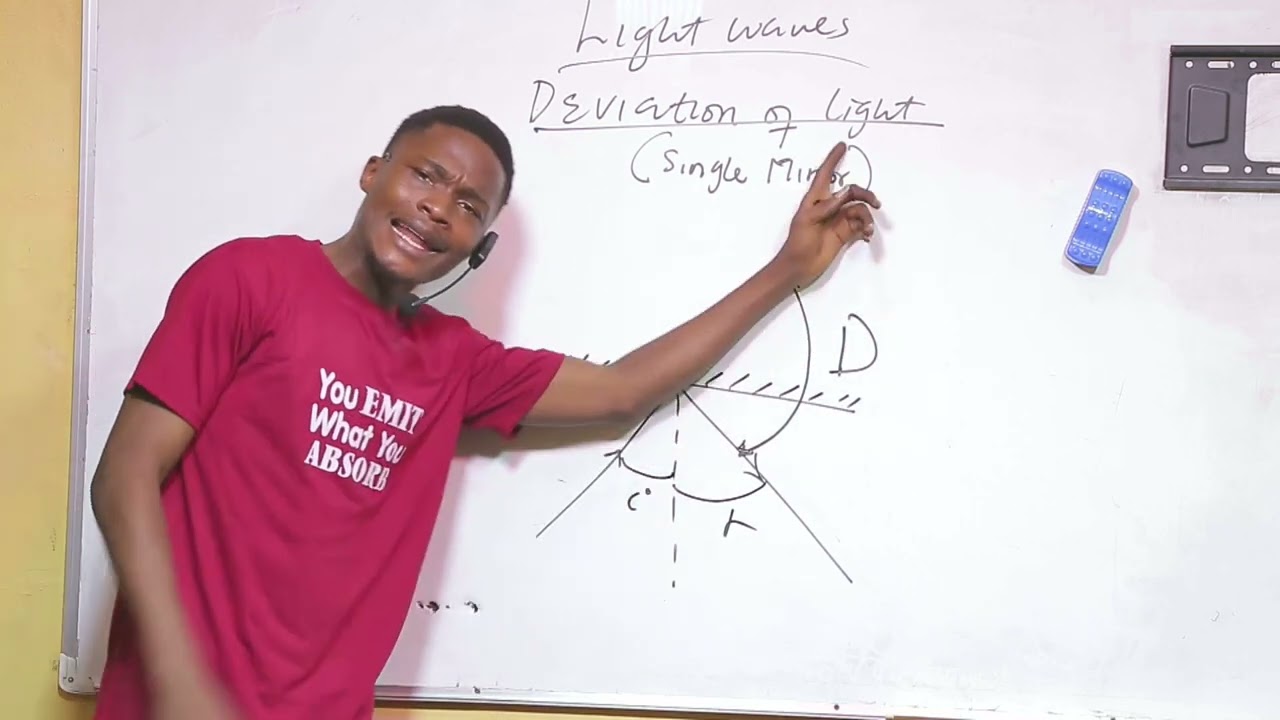 Light waves
Deviation of light
(Single Mirror)
You EMIT
What You
ABSORB
D
i
r